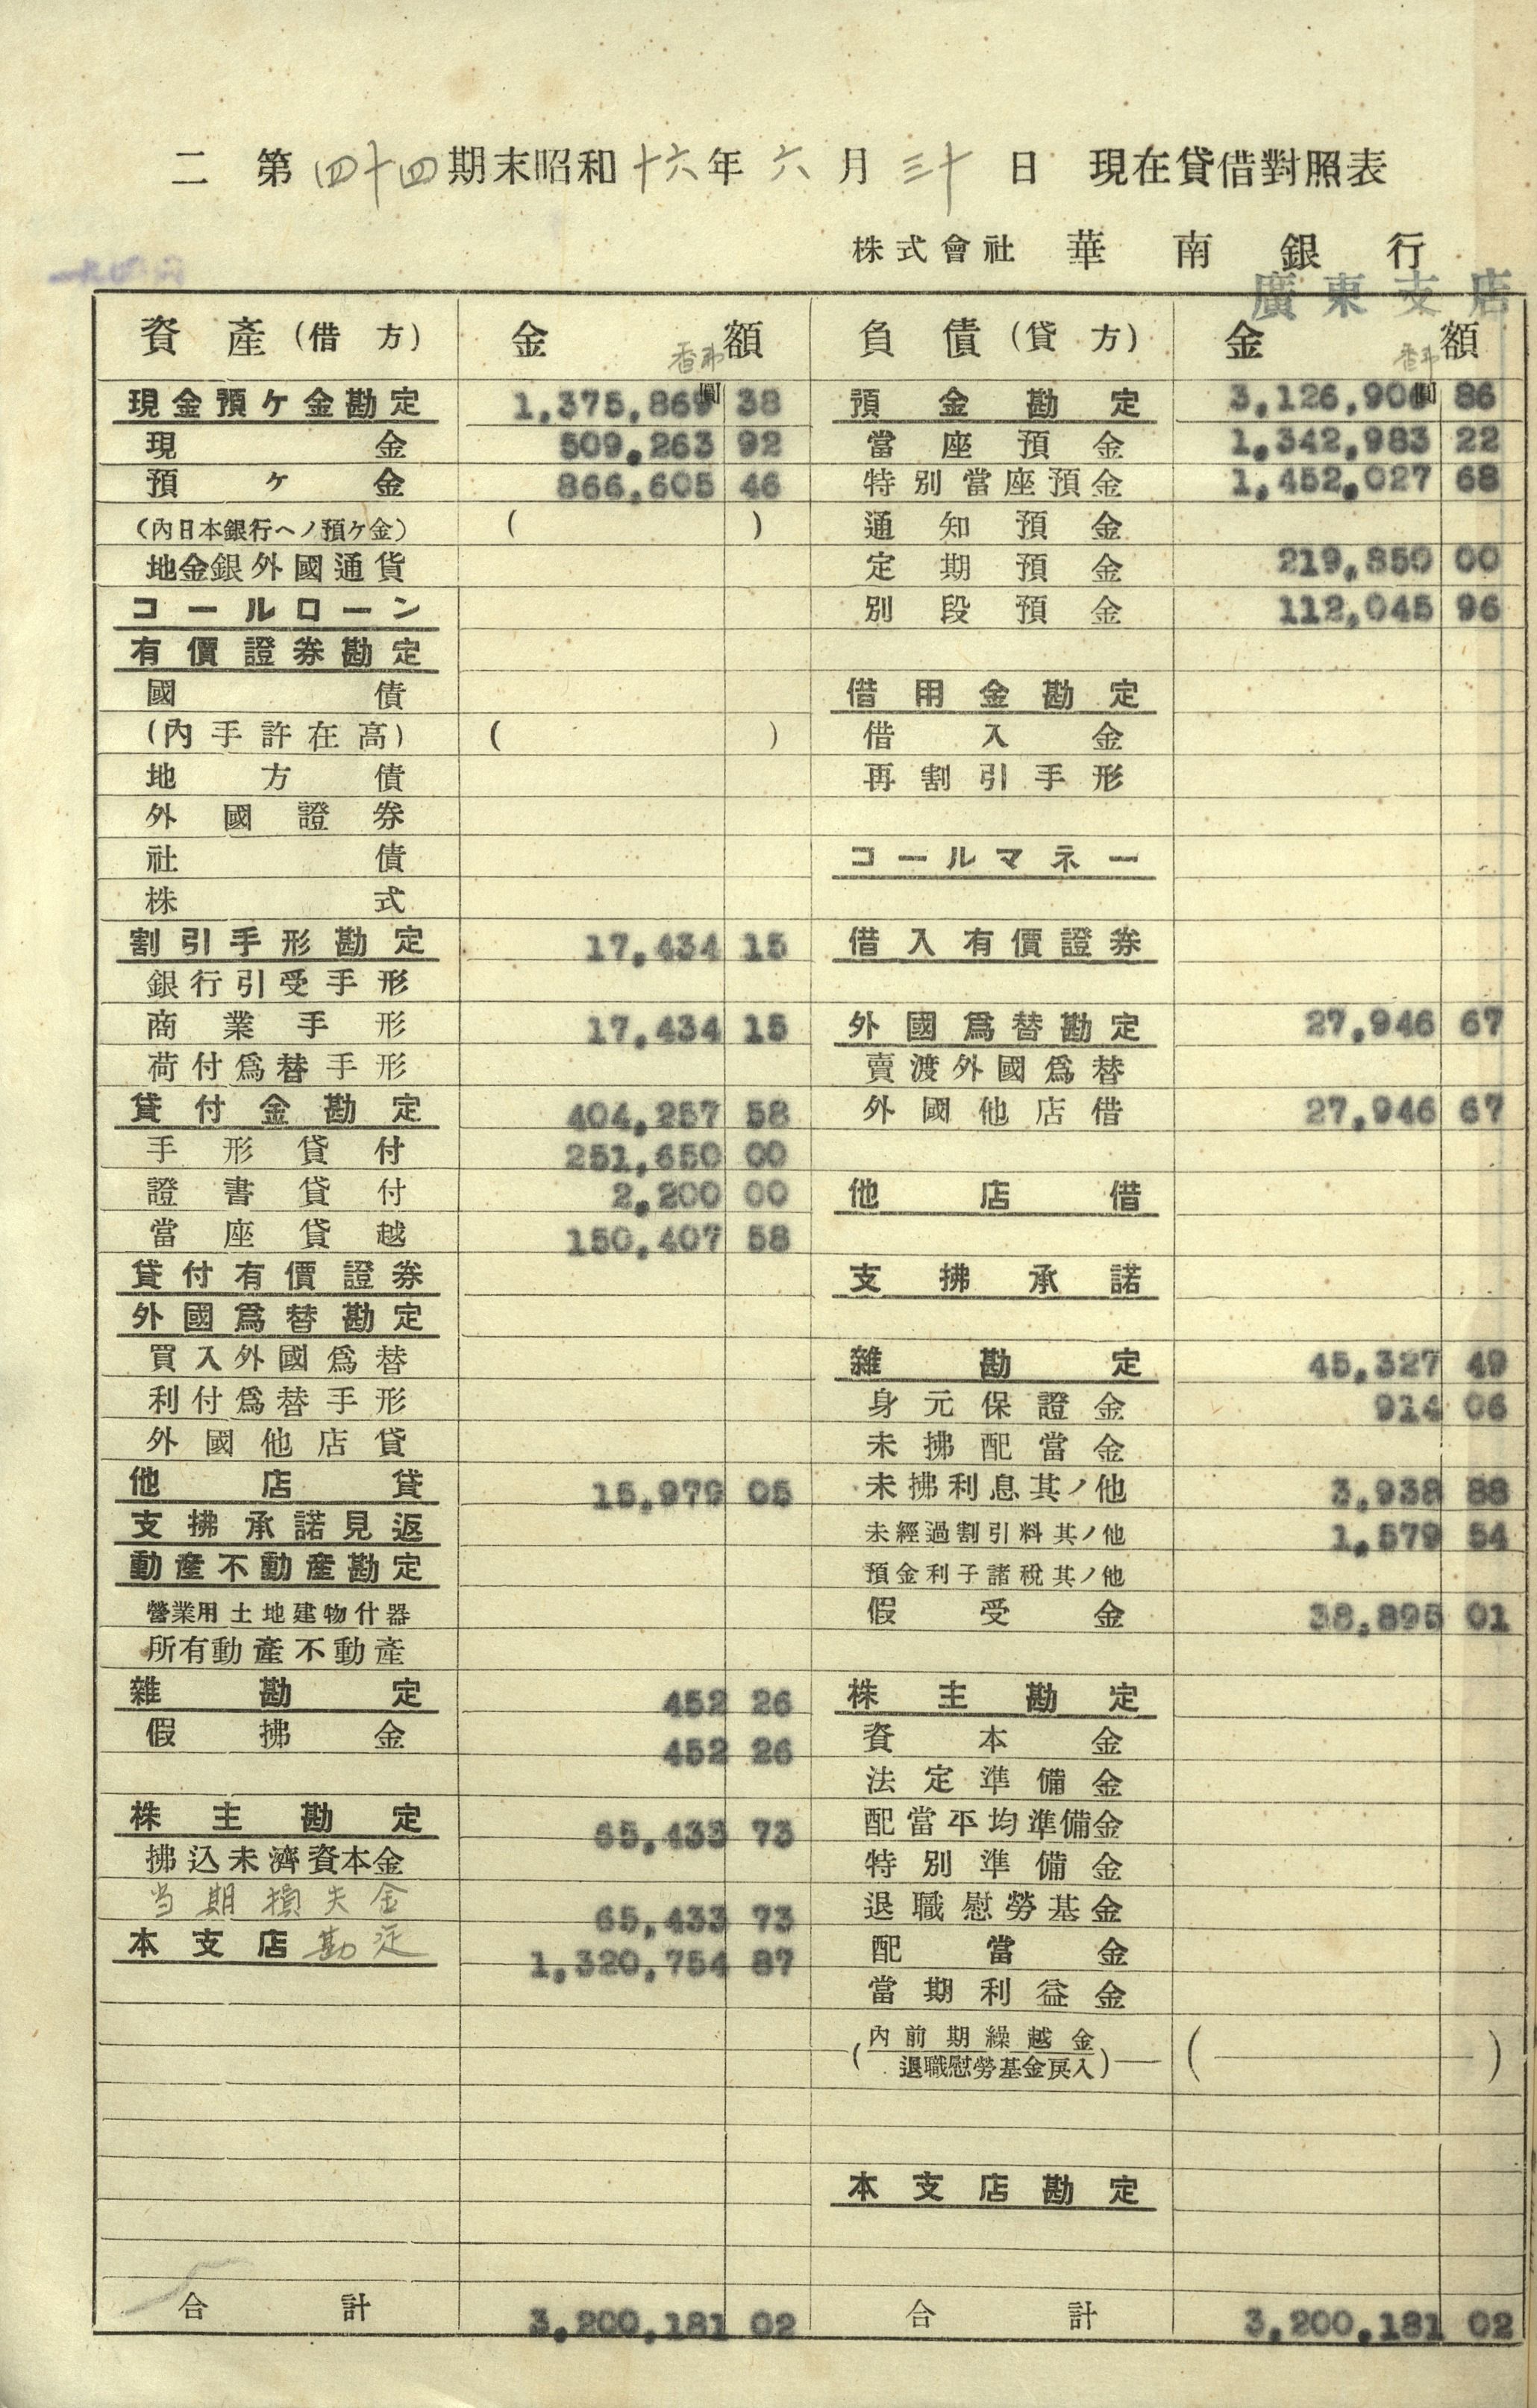 二 第四十四期末昭和十六年六月三十日 現在貸借對照表
株式會社 華南銀行
廣東支店
資產(借方) 金額 負債(貸方) 金額
香弗 香弗
圓 圓
現金預ケ金勘定 1,375,869 38 預金勘定 3,126,906 86
現金 509,263 92 當座預金 1,342,983 22
預ケ金 866,605 46 特別當座預金 1,452,027 68
(內日本銀行ヘノ預ケ金) ( ) 通知預金
地金銀外國通貨 定期預金 219,850 00
コールローン 別段預金 112,045 96
有價證券勘定
國債 借用金勘定
(內手許在高) ( ) 借入金
地方債 再割引手形
外國證券
社債 コールマネー
株式
割引手形勘定 17,434 15 借入有價證券
銀行引受手形
商業手形 17,434 15 外國爲替勘定 27,946 67
荷付爲替手形 賣渡外國爲替
貸付金勘定 404,257 58 外國他店借 27,946 67
手形貸付 251,650 00
證書貸付 2,200 00 他店借
當座貸越 150,407 58
貸付有價證券 支拂承諾
外國爲替勘定
買入外國爲替 雜勘定 45,327 49
利付爲替手形 身元保證金 914 06
外國他店貸 未拂配當金
他店貸 15,979 05 未拂利息其ノ他 3,938 88
支拂承諾見返 未經過割引料其ノ他 1,579 54
動產不動產勘定 預金利子諸稅其ノ他
營業用土地建物什器 假受金 38,895 01
所有動產不動產
雜勘定 452 26 株主勘定
假拂金 452 26 資本金
法定準備金
株主勘定 65,433 73 配當平均準備金
拂込未濟資本金 特別準備金
当期損失金 65,433 73 退職慰勞基金
本支店勘定 1,320,754 87 配當金
當期利益金
(內前期繰越金 ( )
退職慰勞基金戾入)
本支店勘定
合計 3,200,181 02 合計 3,200,181 02